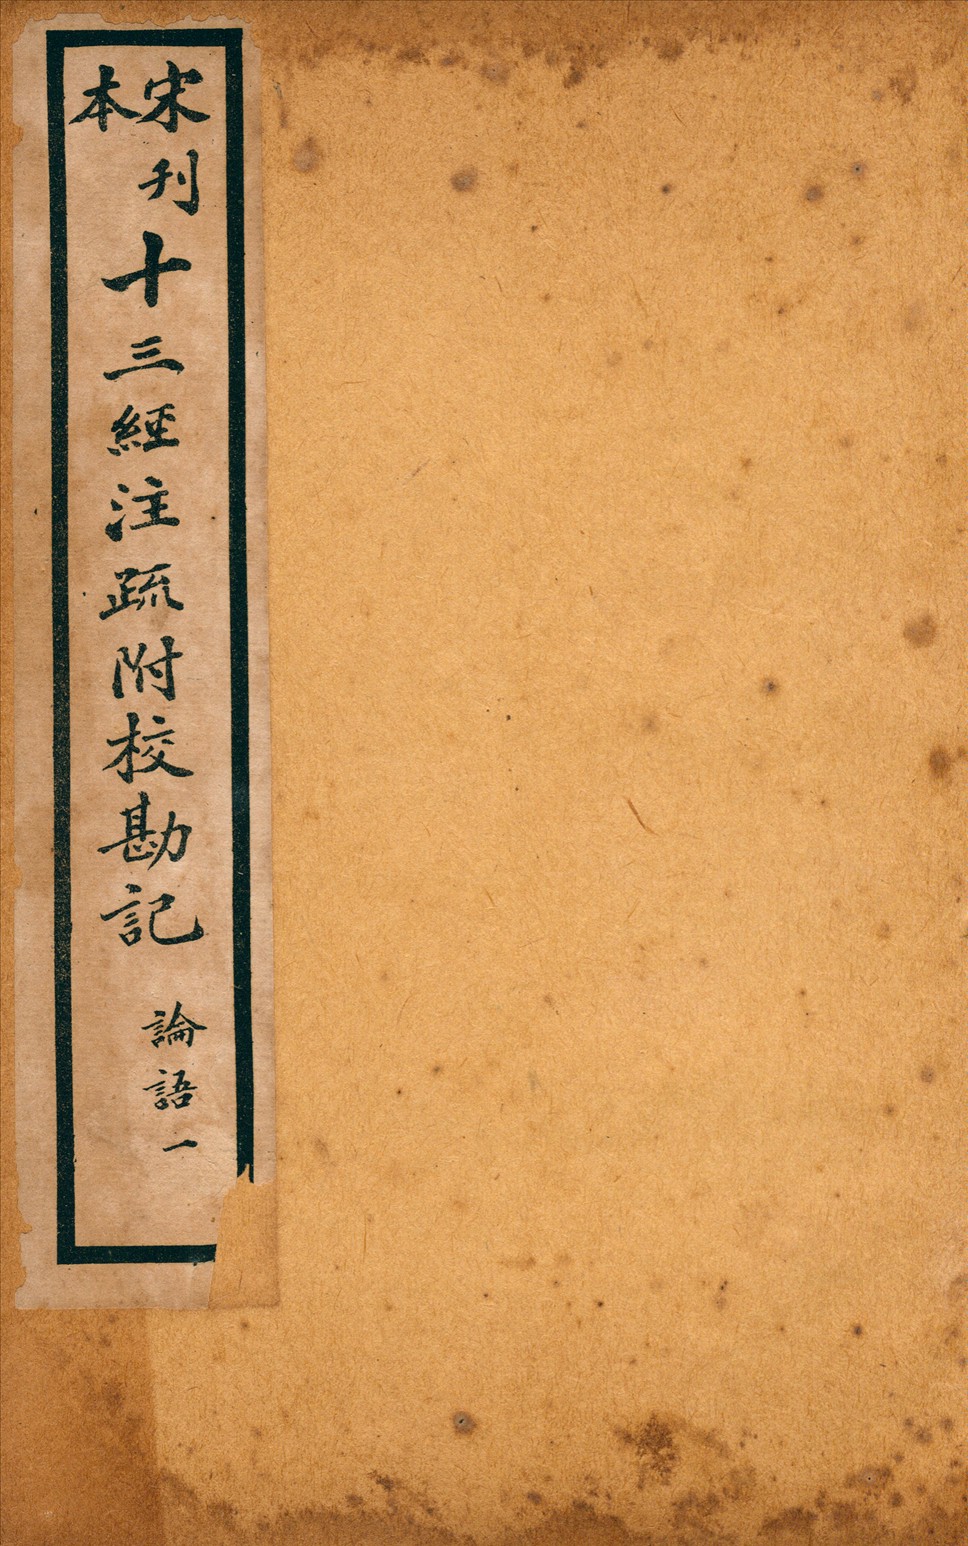 宋刊本十三經注疏附校勘記
論語一